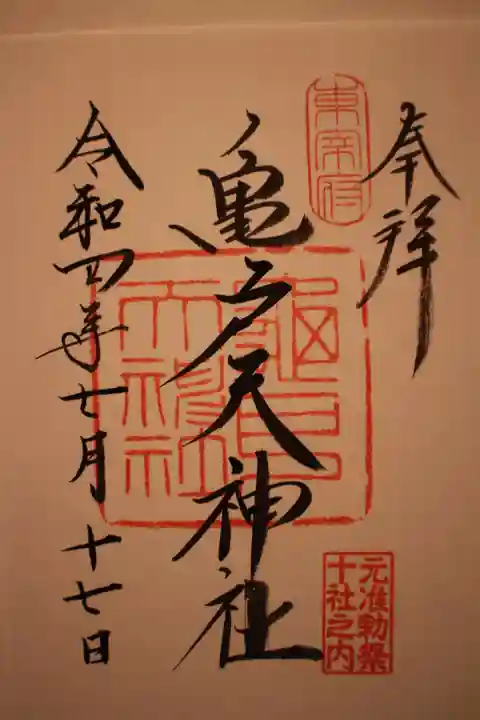 奉拝
東宰府
亀戸天神社
龜戸天神社
元准勅祭
十社之内
令和四年七月十七日